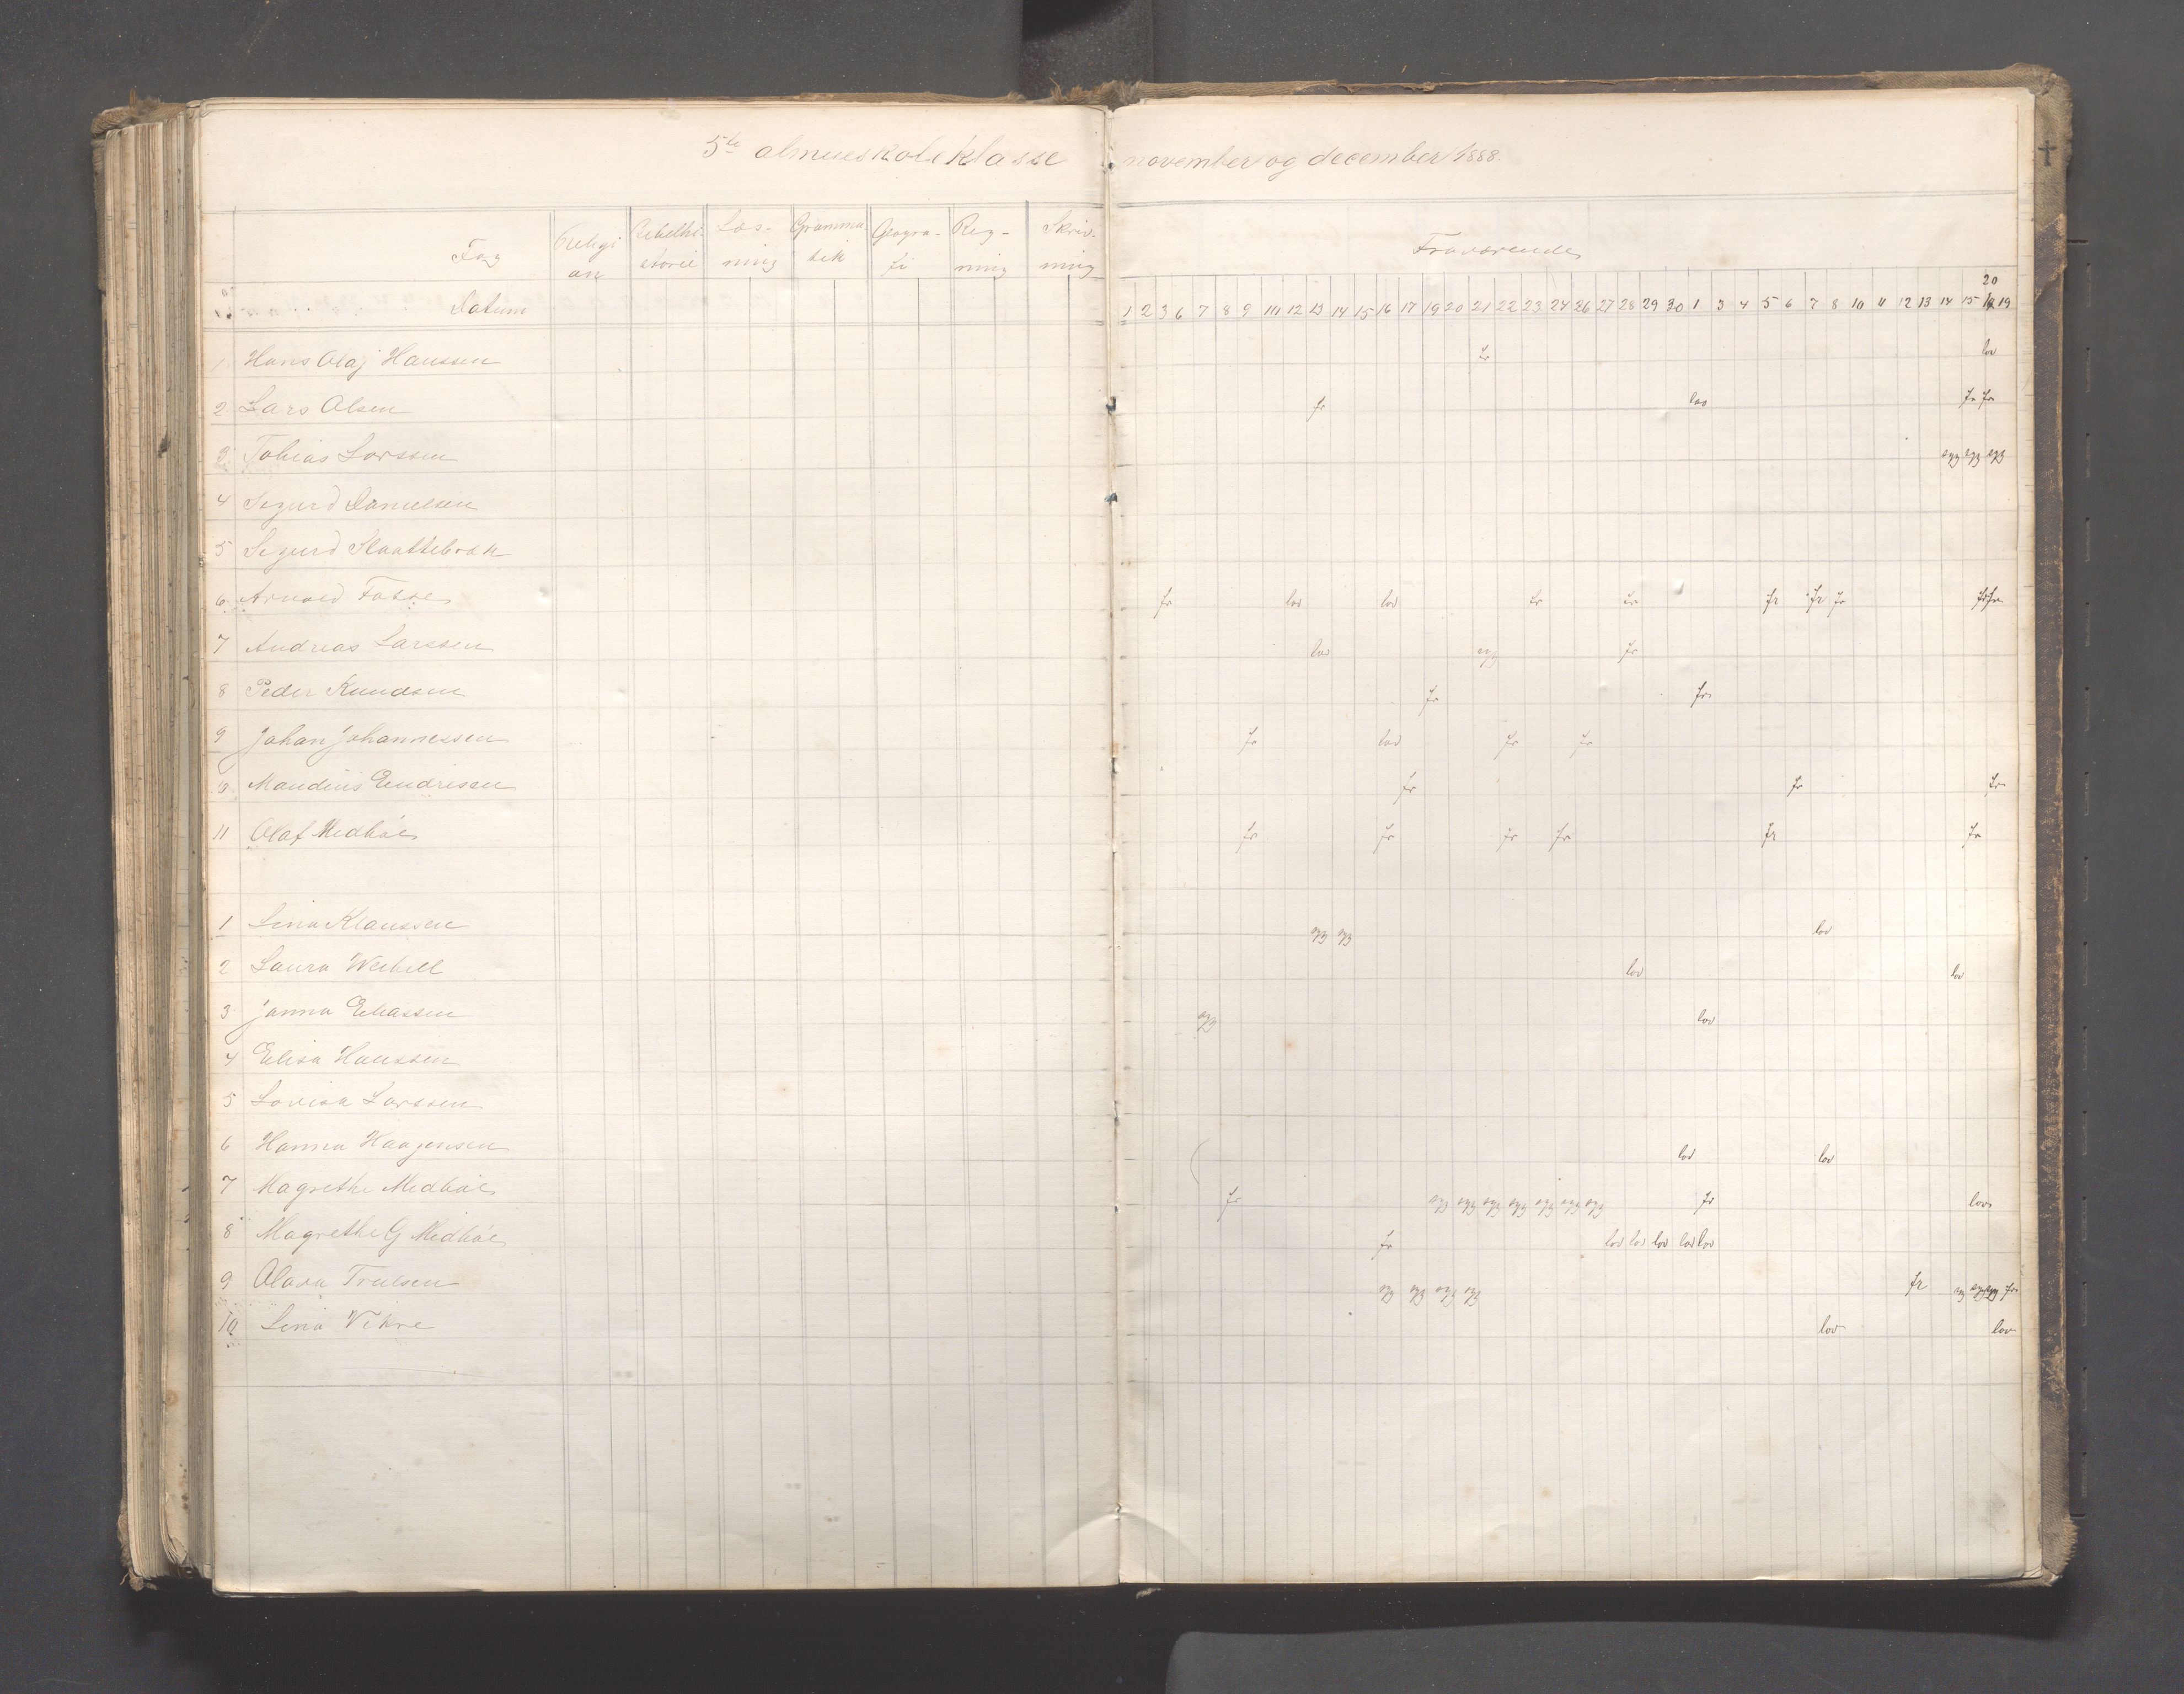 5te almueskoleklasse november og december 1888.
Fag Religi on Bibelhi- storie Læs- ning Gramma tik Geogra- fi Reg- ning Skriv- ning Fraværende
20
Datum 1 2 3 6 7 8 9 10 12 13 14 15 16 17 19 20 21 22 23 24 26 27 28 29 30 1 3 4 5 6 7 8 10 11 12 13 14 15 19
1 Hans Olaj Hanssen fr lov
2 Lars Olsen fr lov fr fr
3 Tobias Larssen syg syg syg
4 Sigurd Danielsen
5 Sigurd Slaattebræk
6 Arnold fr lov lov fr fr fr fr fr fr fr
7 Andreas Larssen lov syg fr
8 Peder Knudsen fr fr
9 Johan Johannessen fr lov fr fr
Maudius Endresen fr fr fr
11 Olaf Medbøe fr fr fr fr fr fr
1 Lina Klaussen syg syg lov
2 Laura lov lov
3 Janna Eliassen syg lov
4 Elisa Hanssen
5 Lovisa Larssen
6 Hanna Haagensen lov lov
7 Magrethe Medbøe fr syg syg syg syg syg syg syg fr lov
8 Magrethe G Medbøe fr lov lov lov lov lov
9 Olava Trulsen syg syg syg syg fr syg syg syg fr
10 Lina Vikre lov lov